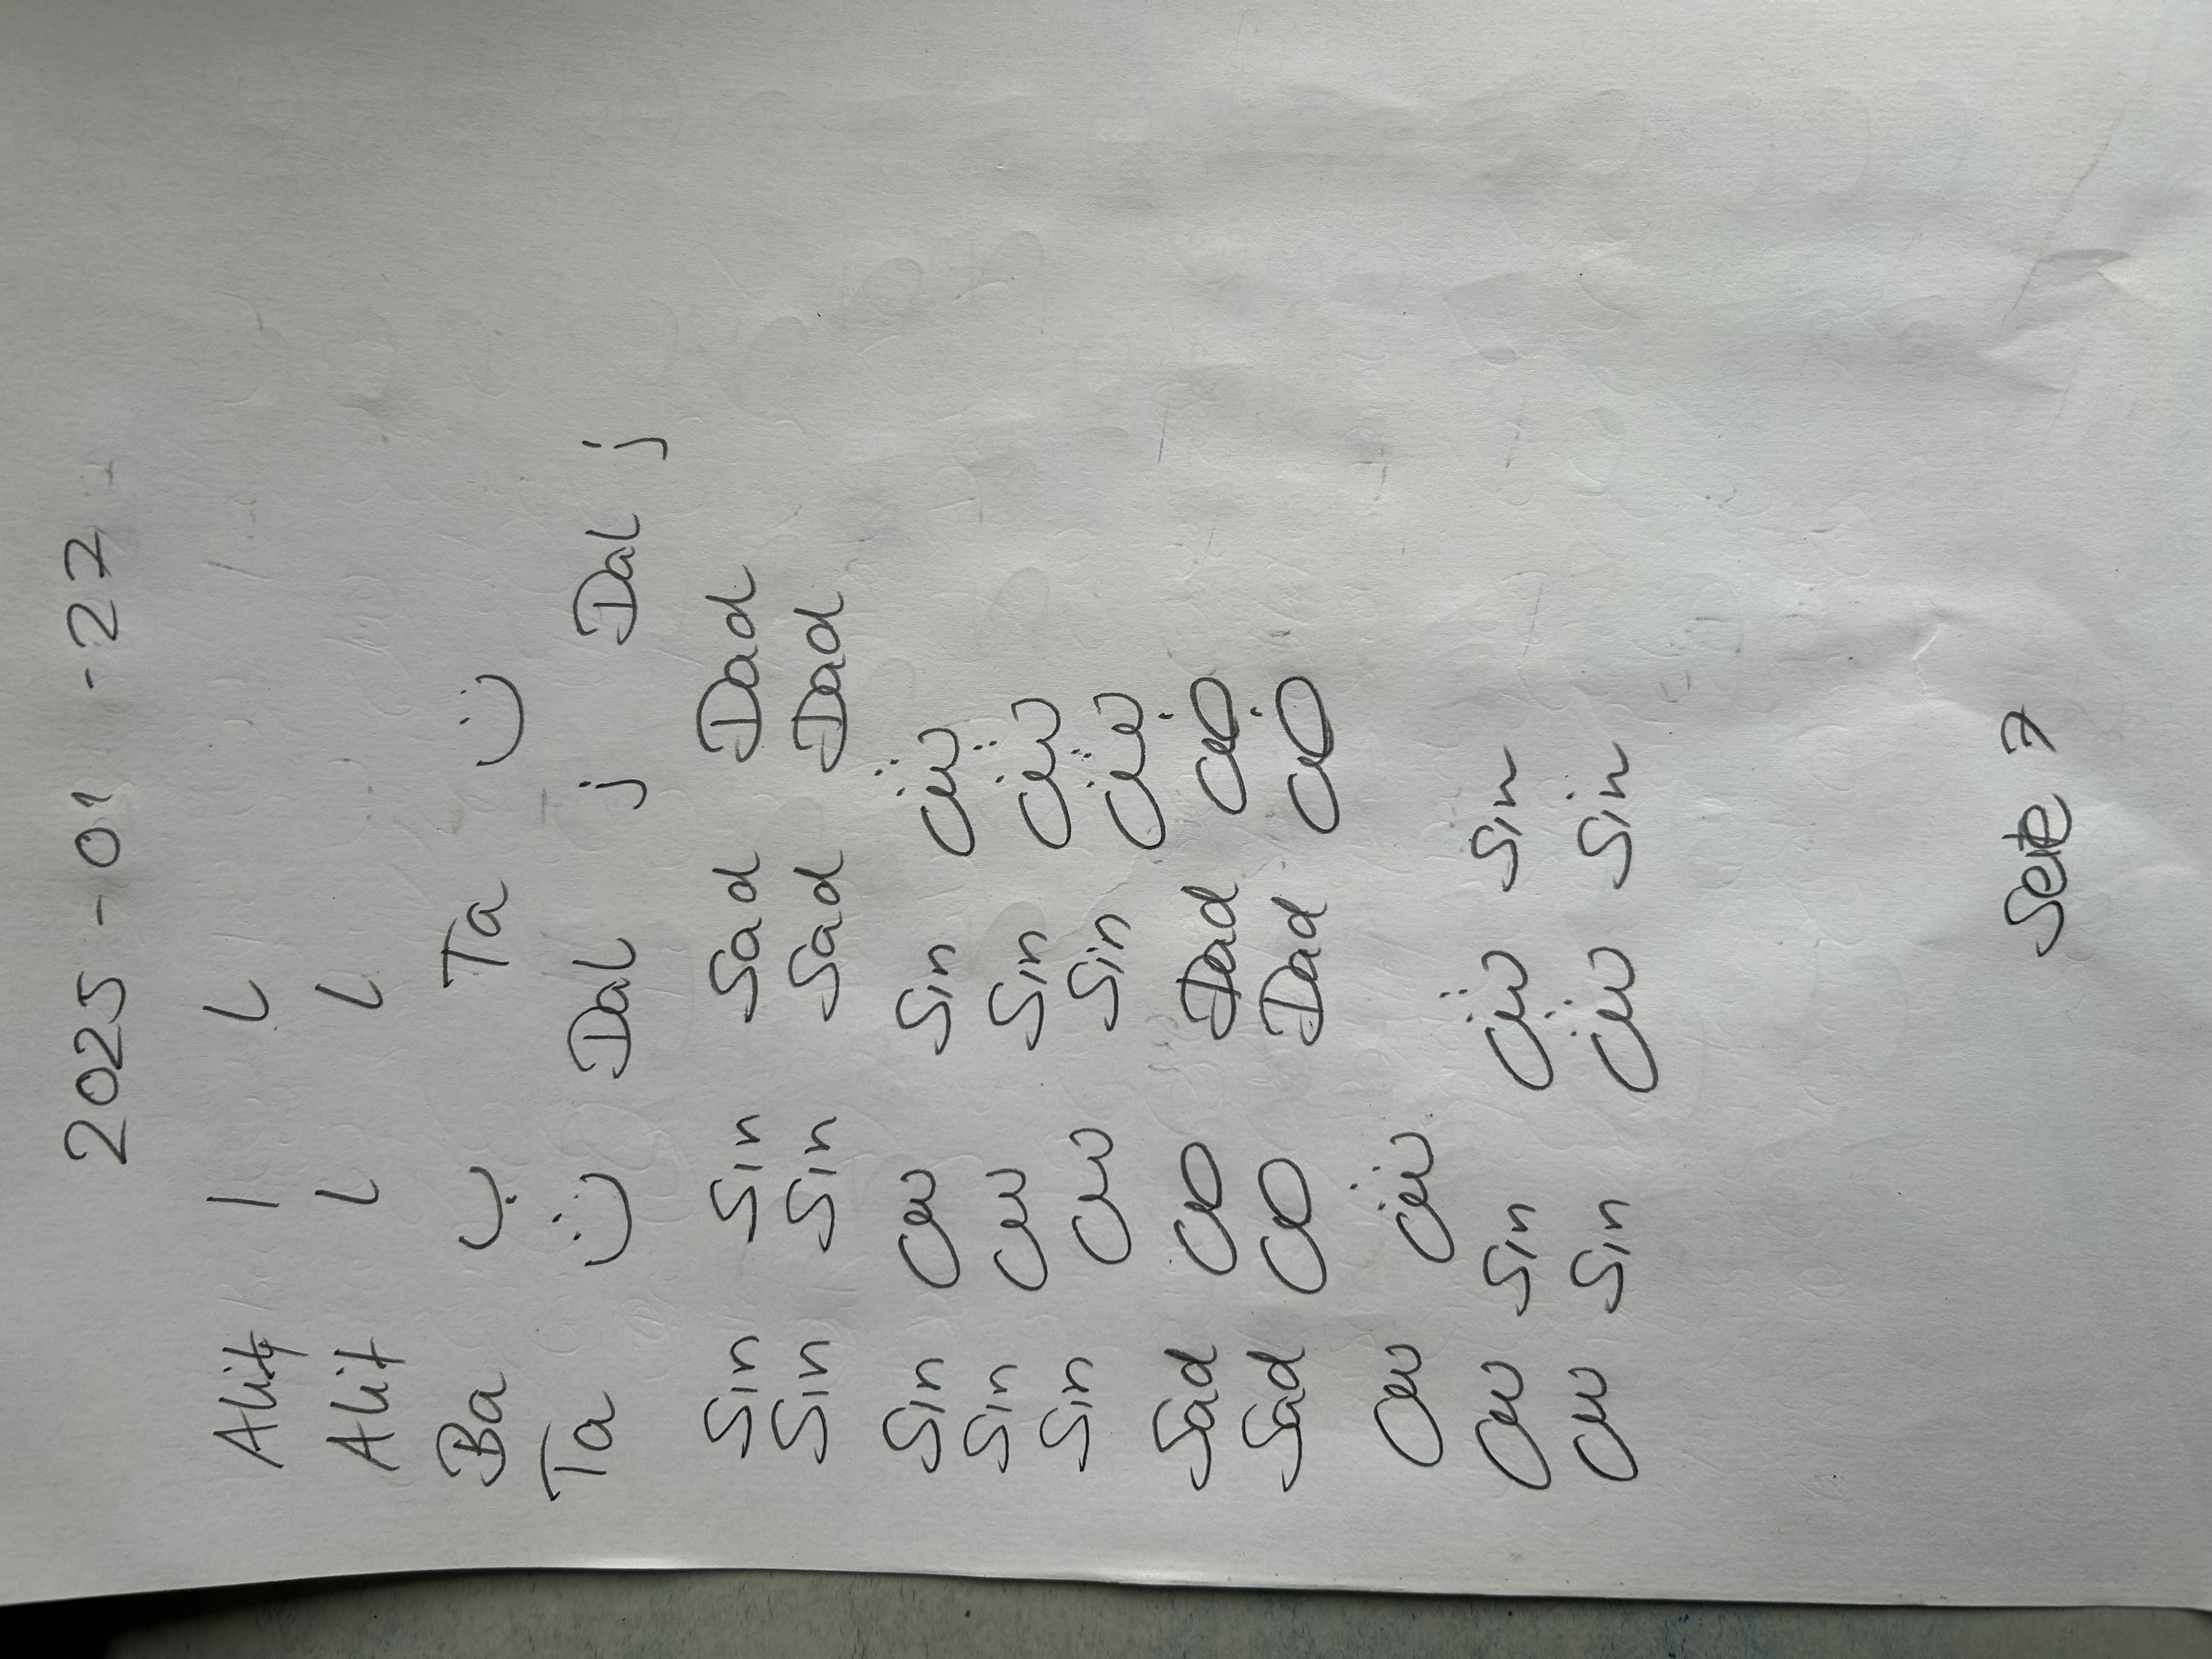 2025-01-27
Alif ا L
Alif L L
Ba ب Ta ت
Ta ت Dal ز Dal ز
Sin Sin Sad Dad
Sin Sin Sad Dad
Sin س Sin ش
Sin س Sin ش
Sin س Sin ش
Sad ص Dad ض
Sad ص Dad ض
س ش
س Sin ش Sin
س Sin ش Sin
7